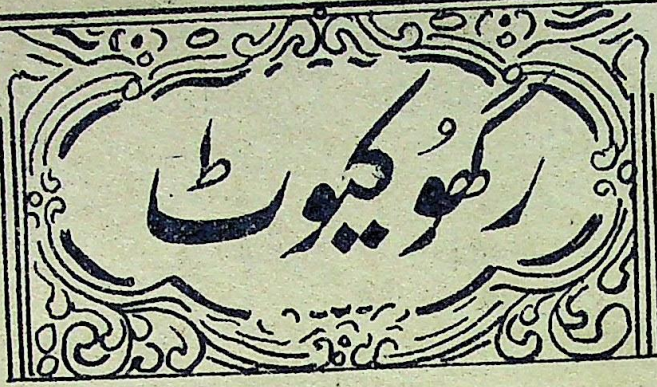 رکھُو کیوٹ